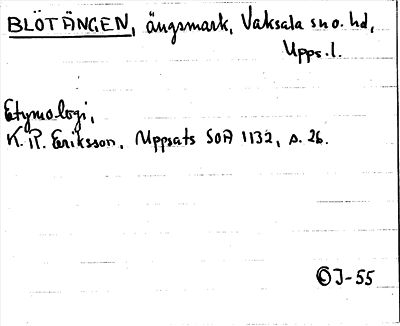 BLÖTÄNGEN, ängsmark, Vaksala sn o. hd,
Upps. l.
Etymologi,
K. R. Eriksson, Uppsats SOÄ 1132, s. 26.
OJ-55